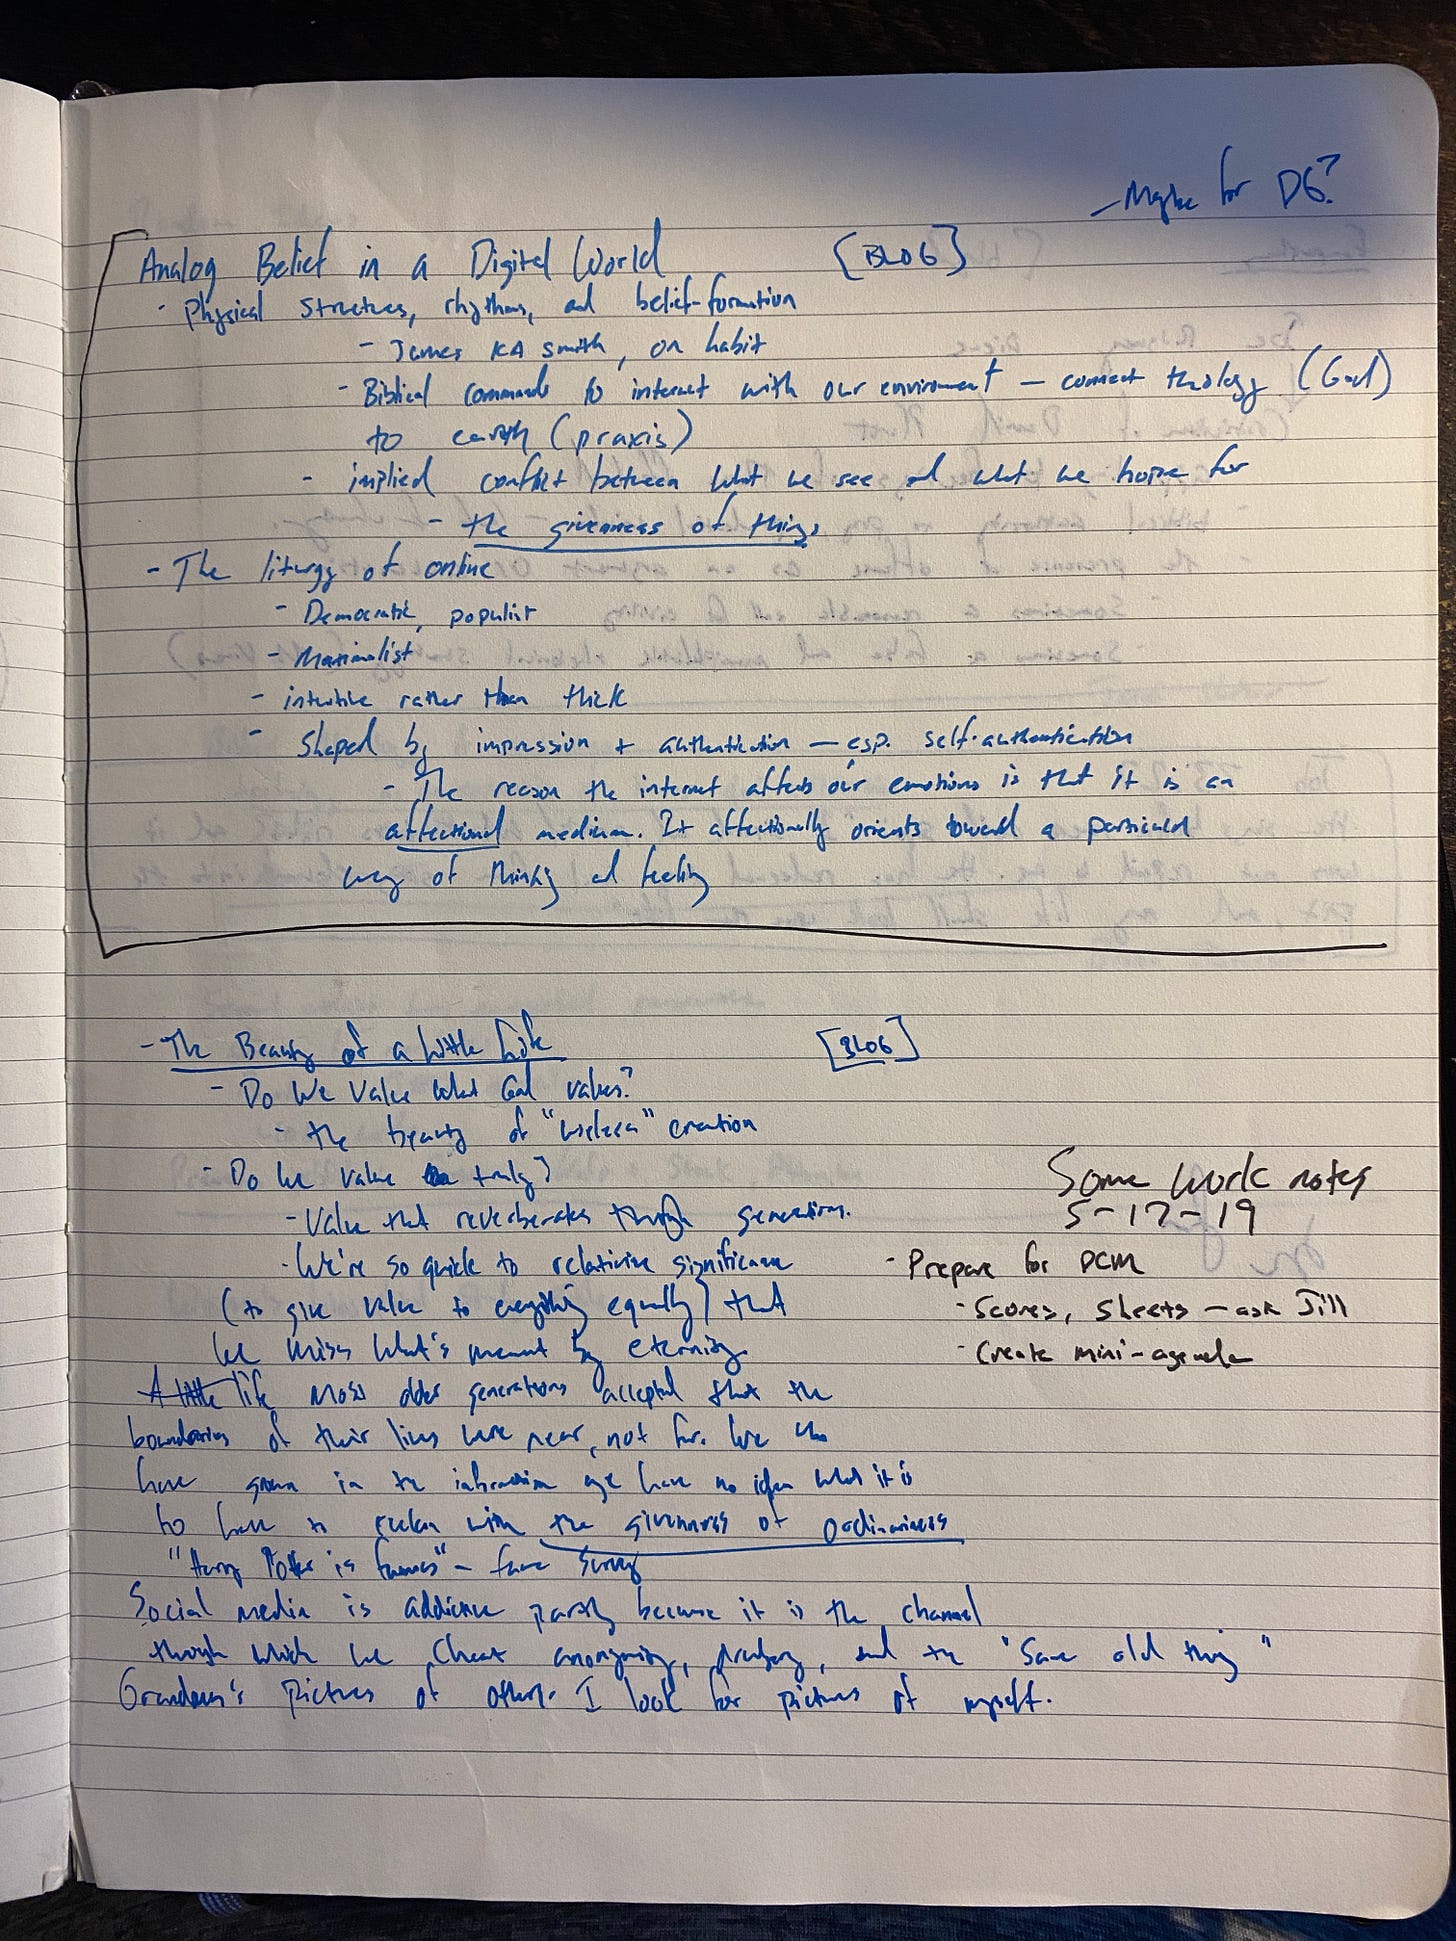 - Maybe for DG?
Analog Belief in a Digital World [BLOG]
- Physical structures, rhythms, and belief-formation
- James KA Smith, on habit
- Biblical commands to interact with our enviroment — connect theology (God)
to earth (praxis)
- implied conflict between what we see and what we hope for
- the givenness of things
- The liturgy of online
- Democratic, populist
- Maximalist
- intuitive rather than thick
- shaped by impression + authentication — esp. self-authentication
- The reason the internet affects our emotions is that it is an
affectional medium. It affectionally orients toward a particular
way of thinking and feeling
- The Beauty of a Little Life [BLOG]
- Do we value what God values?
- the beauty of "useless" creation
- Do we value truly?
- Value that reverberates through generations.
- We're so quick to relativize significance
(to give value to everything equally) that
we miss what's meant by eternity.
A little life Most older generations accepted that the
boundaries of their lives were near, not far. We who
have grown in the information age have no idea what it is
to have to reckon with the givenness of ordinariness
"Harry Potter is famous" - fame survey
Social media is addictive partly because it is the channel
through which we cheat anonymity, and the "same old thing"
Grandma's pictures of others. I look for pictures of myself.
Some work notes
5-17-19
- Prepare for PCM
- Scores, sheets — ask Jill
- Create mini-agenda